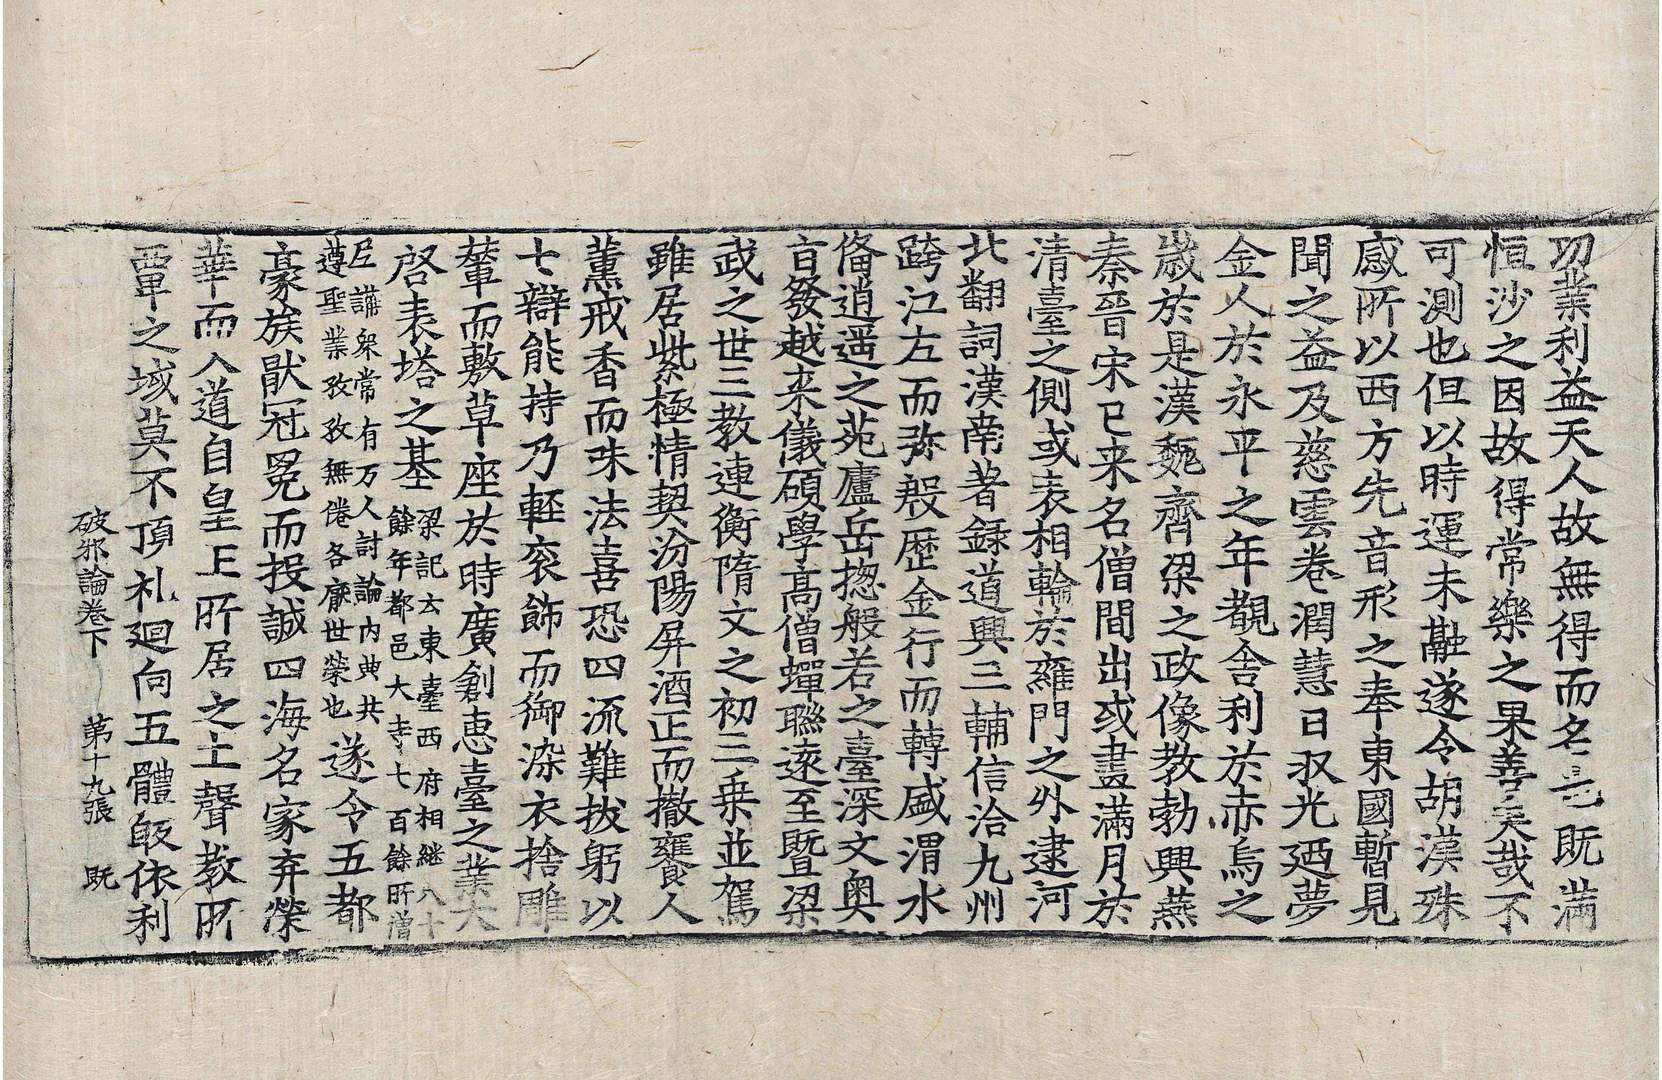 功業利益天人故無得而名言既滿
恒沙之因故得常樂之果善矣哉不
可測也但以時運未融遂令胡漢殊
感所以西方先音形之奉東國暫見
聞之益及慈雲卷潤慧日収光廼夢
金人於永平之年覩舎利於赤烏之
歳於是漢魏齊梁之政像教勃興燕
秦晉宋已来名僧間出或畫滿月於
清臺之側或表相輪於雍門之外逮河
北翻詞漢南著録道興三輔信洽九州
跨江左而弥殷歴金行而轉盛渭水
俻逍遥之苑廬岳揔般若之臺深文奥
旨發越来儀碩學髙僧蟬聯遠至暨梁
武之世三教連衡隋文之初三乗並駕
雖居紫極情契汾陽屏酒正而撤饔人
薫戒香而味法喜恐四流難拔躬以
七辯能持乃軽衮飾而御染衣捨雕
輦而敷草座於時廣創恵臺之業大
啓表塔之基 梁記云東臺西府相継八十
餘年都邑大寺七百餘所僧
尼講衆常有万人討論内典共
遵聖業孜孜無倦各厭世榮也 遂令五都
豪族猒冠冕而投誠四海名家弃榮
華而入道自皇上所居之土聲教所
覃之域莫不頂礼廻向五體皈依利
破邪論卷下 第十九張 既